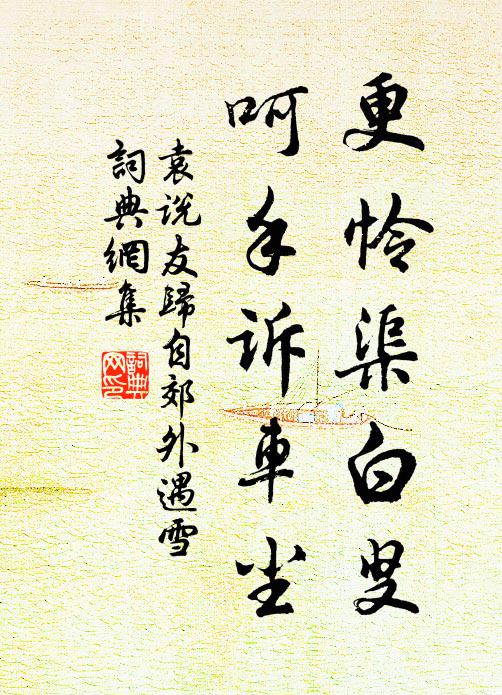 更怜渠白叟
呵手訴車尘
袁说友歸自郊外遇雪
詞典網集
詞典网印